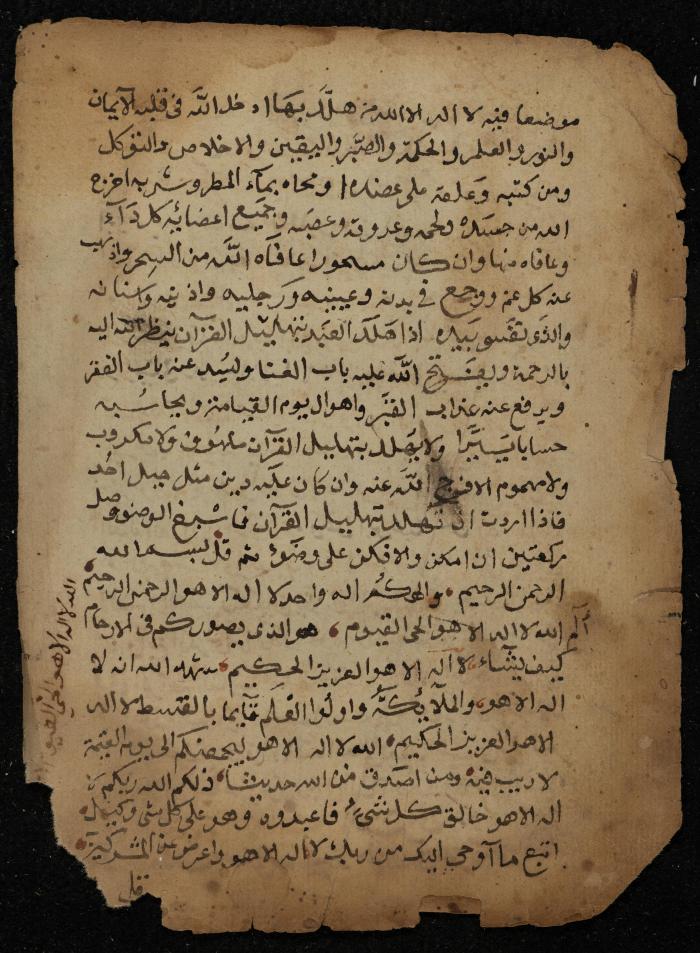 موضعا فيه لا اله الا الله من هلّل بها ادخل الله فى قلبه الايمان
والنور والعلم والحكمة والصبر واليقين والاخلاص والتوكل
ومن كتبه وعلقه على عضده او محاه بمآء المطر وشربه اخرج
الله من جسده ولحمه وعروقه وعصبه وجميع اعضائه كل دآء
وعافاه منها وان كان مسحورا عافاه الله من السحر واذهب
عنه كل غم ووجع فى بدنه وعينيه ورجليه واذنيه واسنانه
والذى نفسى بيده اذا هلل العبد بتهليل القرآن ينظر الله اليه
بالرحمة ويفتح الله عليه باب الغنا ويسد عنه باب الفقر
ويرفع عنه عذاب القبر واهوال يوم القيامة ويحاسبه
حسابا يسيرا ولا يهلل بتهليل القرآن ملهوف ولا مكروب
ولا مهموم الا فرج الله عنه وان كان عليه دين مثل جبل احد
فاذا اردت ان تهلل بتهليل القرآن فاسبغ الوضو وصل
ركعتين ان امكن والا فكن على وضوء ثم قل بسم الله
الرحمن الرحيم والهكم اله واحد لا اله الا هو الرحمن الرحيم
آلم الله لا اله الا هو الحى القيوم هو الذى يصوركم فى الارحام
كيف يشآء لا اله الا هو العزيز الحكيم شهد الله انه لا
اله الا هو والملآئكة واولوا العلم قآئما بالقسط لا اله
الا هو العزيز الحكيم الله لا اله الا هو ليجمعنكم الى يوم القيمة
لا ريب فيه ومن اصدق من الله حديثا ذلكم الله ربكم لا
اله الا هو خالق كل شىء فاعبدوه وهو على كل شى وكيل
اتبع ما آوحى اليك من ربك لا اله الا هو واعرض عن المشركين
قل
الله لا اله الا هو الحى القيوم